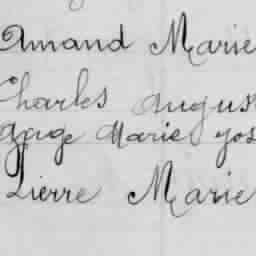 Amand Marie
Charles Augus
Ange Marie Jos
Pierre Marie